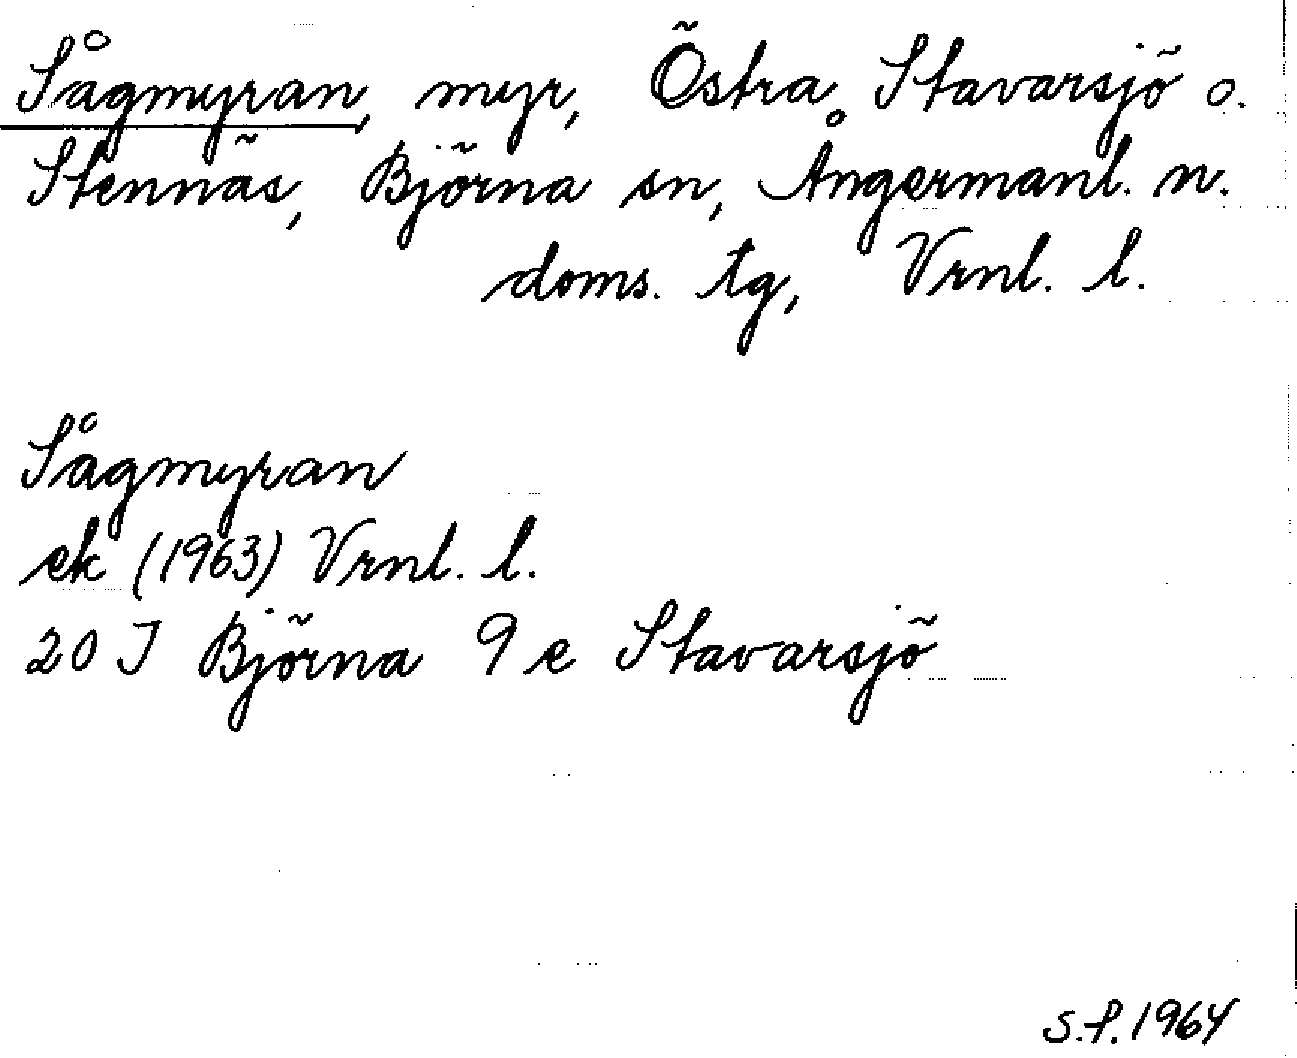 Sågmyran, myr, Östra Stavarsjö o.
Stennäs, Björna sn, Ångermanl. n.
doms. tg, Vrnl. l.
Sågmyran
ek (1963) Vrnl. l.
20 I Björna 9 e Stavarsjö
S.f. 1964